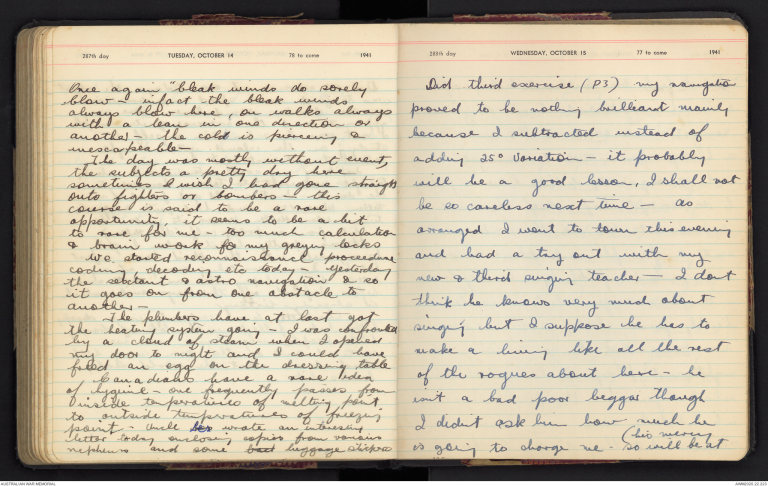 287th day TUESDAY, OCTOBER 14 78 to come 1941
Once again "bleak winds do sorely
blow - infact the bleak winds
always blow here, on walks always
with a lean in one direction or
another - the cold is piercing &
inescapeable -
The day was mostly without event,
the subjects a pretty dry here
sometimes I wish I had gone straight
onto fighters or bombers - this
course is said to be a rare
opportunity, it seems to be a bit
to rare for me - too much calculation
& brain work for my greying locks
We started reconnaissance proceedure
coding, decoding etc today - yesterday
the sextant & astro navigation & so
it goes on from one obstacle to
another -
The plumbers have at last got
the heating system going - I was confronted
by a cloud of steam when I opened
my door to night and I could have
fried an egg on the dressing table
Canadians have a rare idea
of hygiene - one frequently passes from
inside temperatures of melting point
to outside temperatures of freezing
point - Uncle wrote an interesting
letter today enclosing copies from various
nephews and some luggage
288th day WEDNESDAY, OCTOBER 15 77 to come 1941
Did third exercise (P3) my navigation
proved to be nothing brilliant mainly
because I subtracted instead of
adding 25° Variation - it probably
will be a good lesson, I shall not
be so careless next time - as
arranged I went to town this evening
and had a try out with my
new & third singing teacher - I dont
think he knows very much about
singing but I suppose he has to
make a living like all the rest
of the rogues about here - he
isn't a bad poor beggar though
I didn't ask him how much he
is going to charge me - so will be at
(his mercy
AUSTRALIAN WAR MEMORIAL